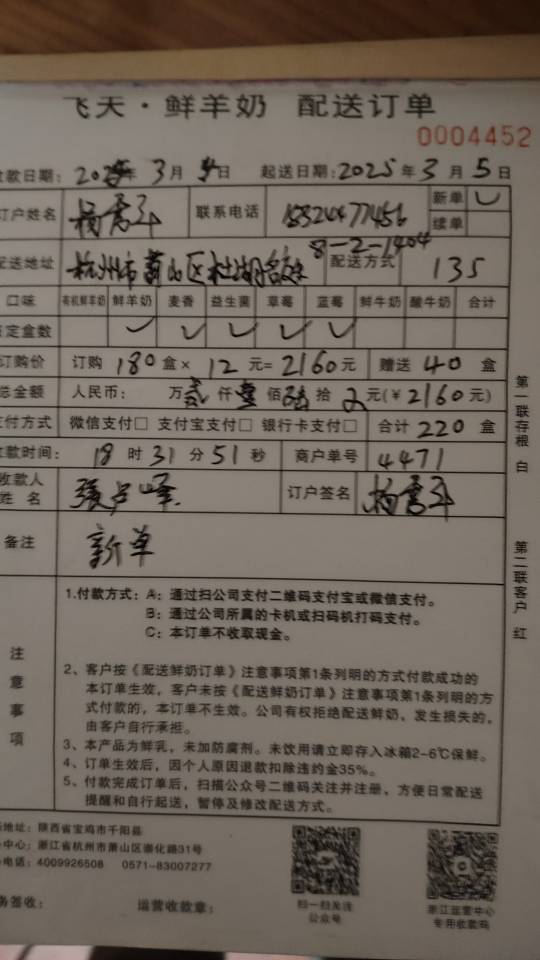 飞天·鲜羊奶 配送订单
0004452
收款日期: 2025年3月4日 起送日期:2025年3月5日
订户姓名 联系电话 15324477456 新单 ✓
续单
配送地址 杭州市萧山区 8-2-1404 配送方式 135
口味 有机鲜羊奶 鲜羊奶 麦香 益生菌 草莓 蓝莓 鲜牛奶 酸牛奶 合计
定盒数 ✓ ✓ ✓ ✓ ✓
订购价 订购180盒×12元=2160元 赠送40盒
总金额 人民币: 万贰仟壹佰陆拾 元(¥2160元)
支付方式 微信支付□ 支付宝支付□ 银行卡支付□ 合计220盒
收款时间: 18时31分51秒 商户单号 4471
收款人姓名 张占峰 订户签名
备注 新单
注意事项
1.付款方式: A: 通过扫公司支付二维码支付宝或微信支付。
B: 通过公司所属的卡机或扫码机打码支付。
C: 本订单不收取现金。
2、客户按《配送鲜奶订单》注意事项第1条列明的方式付款成功的
本订单生效,客户未按《配送鲜奶订单》注意事项第1条列明的方
式付款的,本订单不生效。公司有权拒绝配送鲜奶,发生损失的,
由客户自行承担。
3、本产品为鲜乳,未加防腐剂。未饮用请立即存入冰箱2-6℃保鲜。
4、订单生效后,因个人原因退款扣除违约金35%。
5、付款完成订单后,扫描公众号二维码关注并注册,方便日常配送
提醒和自行起送,暂停及修改配送方式。
地址: 陕西省宝鸡市千阳县
中心: 浙江省杭州市萧山区崇化路31号
电话: 4009926508 0571-83007277
务签收: 运营收款章:
扫一扫关注
公众号
浙江运营中心
专用收款码
第一联存根 白
第二联客户 红